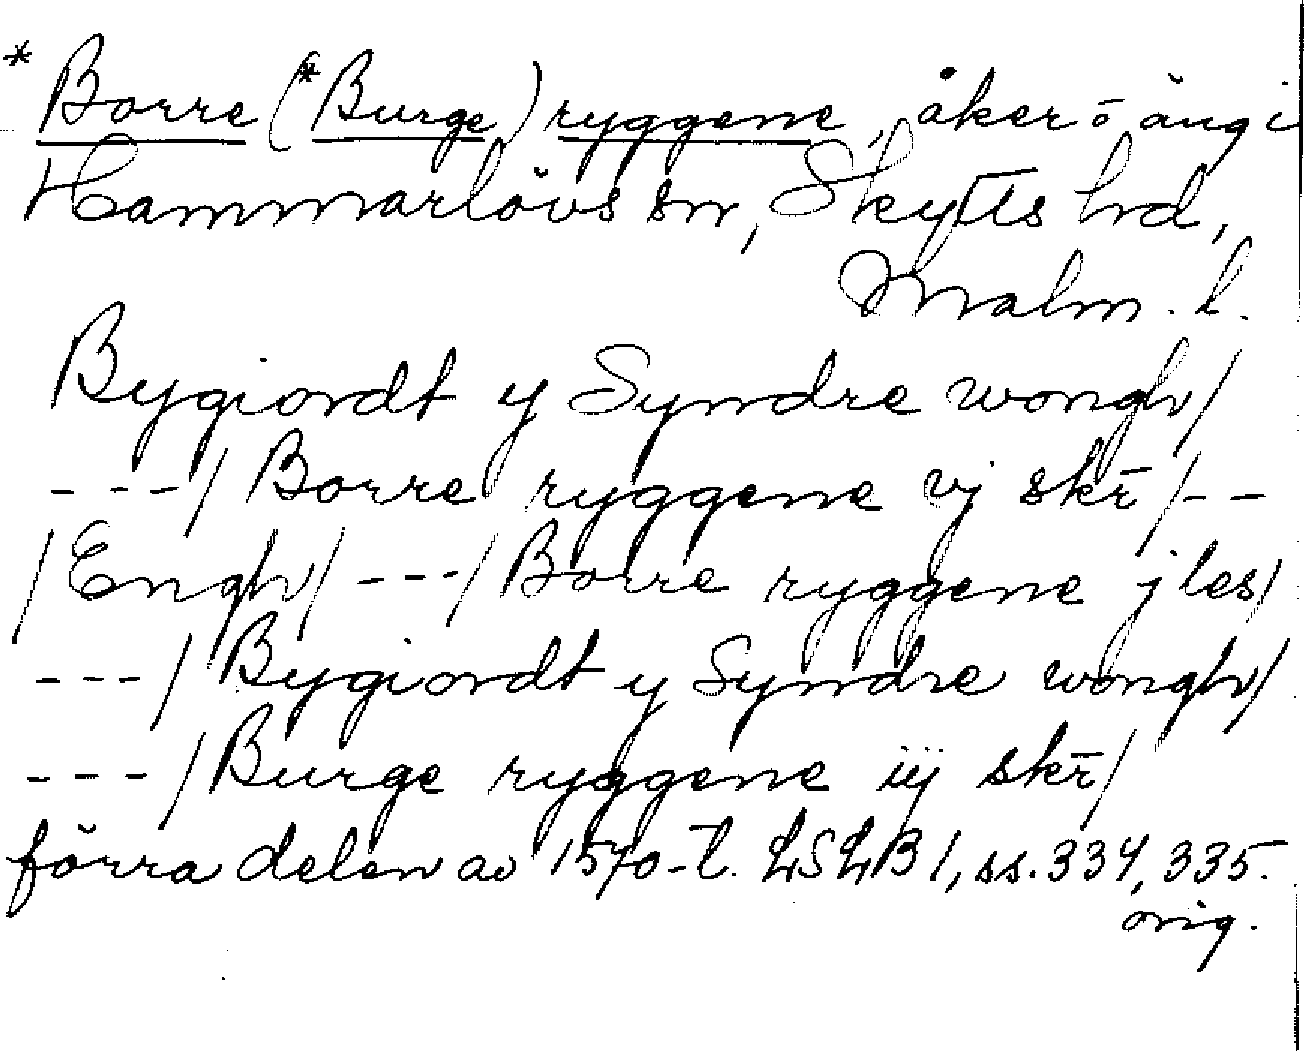 * Borre (*Burge) ryggene, åker o äng i
Hammarlövs sn, Skytts hd,
Malm. l.
Bygiordt y Syndre wongh/
---/ Borre ryggene vj skr̄ /--
/Engh/ ---/ Borre ryggene j les/
---/ Bygiordt y Syndre wongh/
---/ Burge ryggene iij skr̄/
förra delen av 1570-t. LSLB 1, ss. 334, 335.
orig.